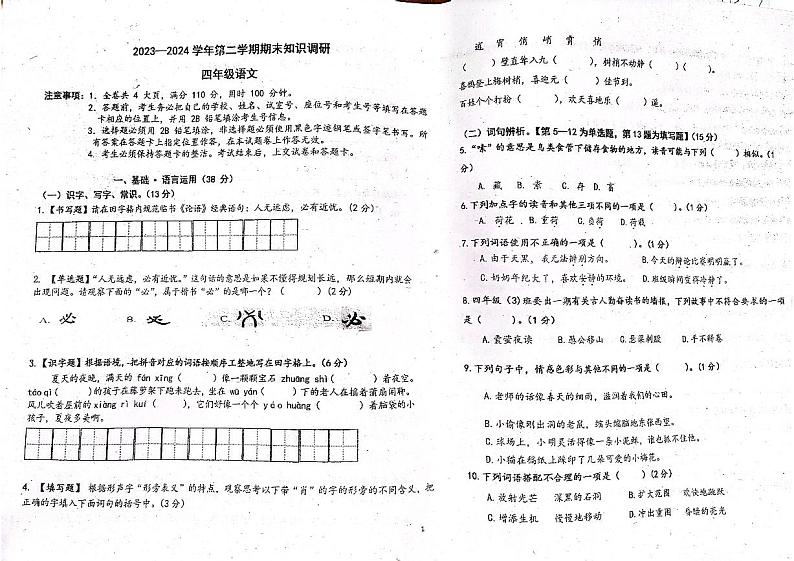 2023—2024学年第二学期期末知识调研
四年级语文
注意事项：1、全卷共 4 大页，满分 110 分，用时 100 分钟。
2、答题前，考生务必把自己的学校、姓名、试室号、座位号和考生号等填写在答题
卡相应的位置上，并用 2B 铅笔填涂考生号信息。
3、选择题必须用 2B 铅笔填涂，非选择题必须使用黑色字迹钢笔或签字笔书写。所
有答案在答题卡上指定位置作答，在本试题卷上作答无效。
4、考生必须保持答题卡的整洁。考试结束后，上交试卷和答题卡。
一、基础·语言运用（38 分）
（一）识字、写字、常识。（13分）
1.【书写题】请在田字格内规范临书《论语》经典语句：人无远虑，必有近忧。（2 分）
2. 【单选题】“人无远虑，必有近忧。”这句话的意思是如果不懂得规划长远，那么短期内就会
出现问题。请观察下面的“必”，属于楷书“必”的是哪一个？（ ）（2 分）
A. 必 B. C. D. 必
3.【识字题】根据语境，把拼音对应的词语按顺序工整地写在田字格上。（6 分）
夏天的夜晚，满天的 fán xīng（ ）像一颗颗宝石 zhuāng shì（ ）着夜空。
táo qì（ ）的孩子在藤萝架下跑来跑去，坐在 wū yán（ ）下的老人在摇着蒲扇闲聊。
风儿吹着屋前的 xiàng rì kuí（ ），它们好像一个个 yáo huàng（ ）着脑袋的小
孩子，夏夜多美啊。
4. 【填写题】 根据形声字“形旁表义”的特点，观察思考以下带“肖”的字的形旁的不同含义，把
正确的字填入下面词句的括号中。（3 分）
逍 霄 俏 峭 宵 悄
（ ）壁直耸入九（ ），树梢不动静（ ）（ ）。
喜鹊高唱上梅树梢，喜迎元（ ）佳节到。
百姓个个打扮（ ），欢天喜地乐（ ）遥。
（二）词句辨析。【第 5—12 为单选题，第 13 题为填写题】（15 分）
5.“嗉”的意思是鸟类食管下储存食物的地方，读音可能与下列（ ）相似。（1
分）
A. 藏 B. 素 C. 存 D. 富
6.下列加点字的读音和其他三项不同的一项是（ ）。（1分）
A. 荷花 B. 重荷 C.负荷 D.荷载
7.下列词语使用不正确的一项是（ ）。（1分）
A. 由于天黑，我无法辨别方向。 B.今天的辩论比赛明明赢了。
C.奶奶年纪大了，喜欢安静的环境。 D.班级瞬间变得冷静了。
8.四年级（3）班要出一期有关古人勤奋读书的墙报，下列故事中不符合要求的一项
是（ ）。（1分）
A.囊萤夜读 B.愚公移山 C.悬梁刺股 D.手不释卷
9.下列句子中，情感色彩与其他不同的一项是（ ）。（1分）
A.老师的话像春天的细雨，滋润着我们的心田。
B.小偷像刚出洞的老鼠，缩头缩脑地东张西望。
C.球场上，小明灵活得像一条小泥鳅，谁也抓不住他。
D.小猫在稿纸上踩印了几朵可爱的小梅花。
10.下列词语搭配不合理的一项是（ ）（2分）
A.放射光芒 深黑的石洞 B.扩大范围 欢快地跳跃
C.增添生机 慢慢地移动 D.冲出重围 昏暗的亮光
1